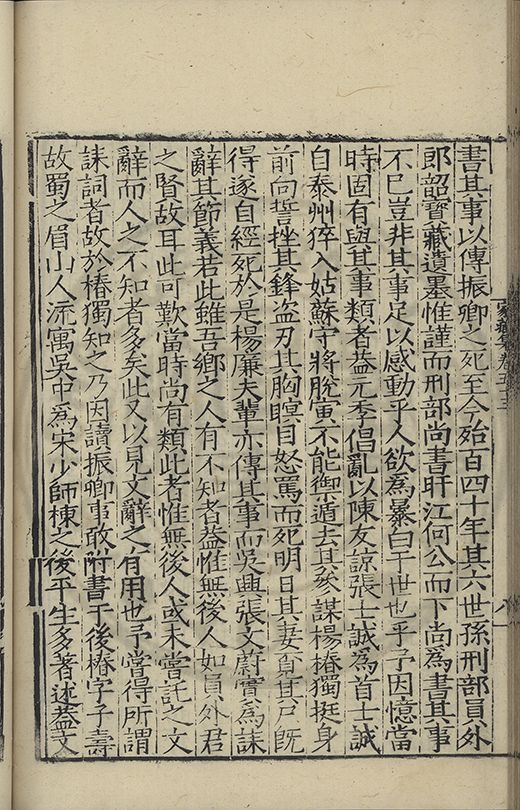 書其事以傳振卿之死至今殆百四十年其六世孫刑部員外
郎韶寶藏遺墨惟謹而刑部尚書盱江何公而下尚為書其事
不已豈非其事足以感動乎人欲為暴白于世也乎予因憶當
時固有與其事類者葢元季倡亂以陳友諒張士誠為首士誠
自泰州猝入姑蘇守將脫寅不能禦遁去其參謀楊椿獨挺身
前向誓挫其鋒盗刃其胸瞋目怒罵而死明日其妻覔其尸既
得遂自經死於是楊廉夫輩亦傳其事而吳興張文蔚實為誄
辭其節義若此雖吾鄉之人有不知者葢惟無後人如員外君
之賢故耳此可歎當時尚有類此者惟無後人或未嘗託之文
辭而人之不知者多矣此又以見文辭之有用也予嘗得所謂
誄詞者故於椿獨知之乃因讀振卿事敢附書于後椿字子壽
故蜀之眉山人流寓吳中為宋少師棟之後平生多著述葢文